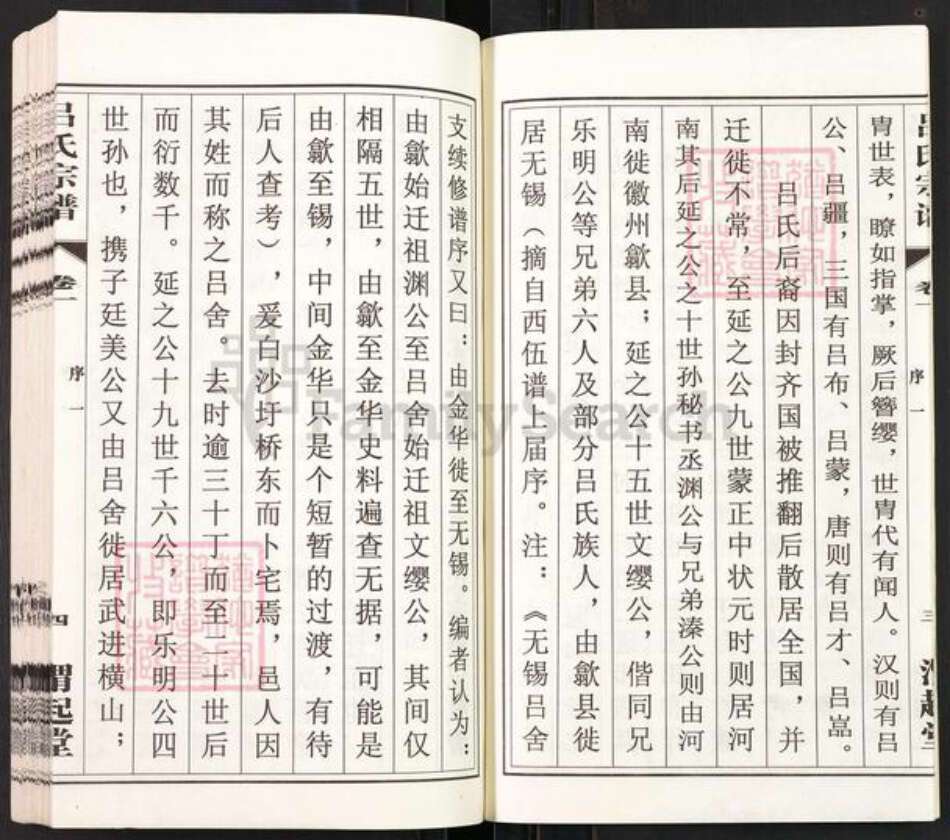 胄世表，瞭如指掌，厥后簪缨，世胄代有闻人。汉则有吕
公、吕疆，三国有吕布、吕蒙，唐则有吕才、吕嵓。
吕氏后裔因封齐国被推翻后散居全国，并
迁徙不常，至延之公九世蒙正中状元时则居河
南其后延之公之十世孙秘书丞渊公与兄弟溱公则由河
南徙徽州歙县；延之公十五世文缨公，偕同兄
乐明公等兄弟六人及部分吕氏族人，由歙县徙
居无锡（摘自西伍谱上届序。注：《无锡吕舍
吕氏宗谱
卷一
序一
三
渭起堂
支续修谱序又曰：由金华徙至无锡。编者认为：
由歙始迁祖渊公至吕舍始迁祖文缨公，其间仅
相隔五世，由歙至金华史料遍查无据，可能是
由歙至锡，中间金华只是个短暂的过渡，有待
后人查考），爰白沙圩桥东而卜宅焉，邑人因
其姓而称之吕舍。去时逾三十丁而至二十世后
而衍数千。延之公十九世千六公，即乐明公四
世孙也，携子廷美公又由吕舍徙居武进横山；
吕氏宗谱
卷一
序一
四
渭起堂
FamilySearch